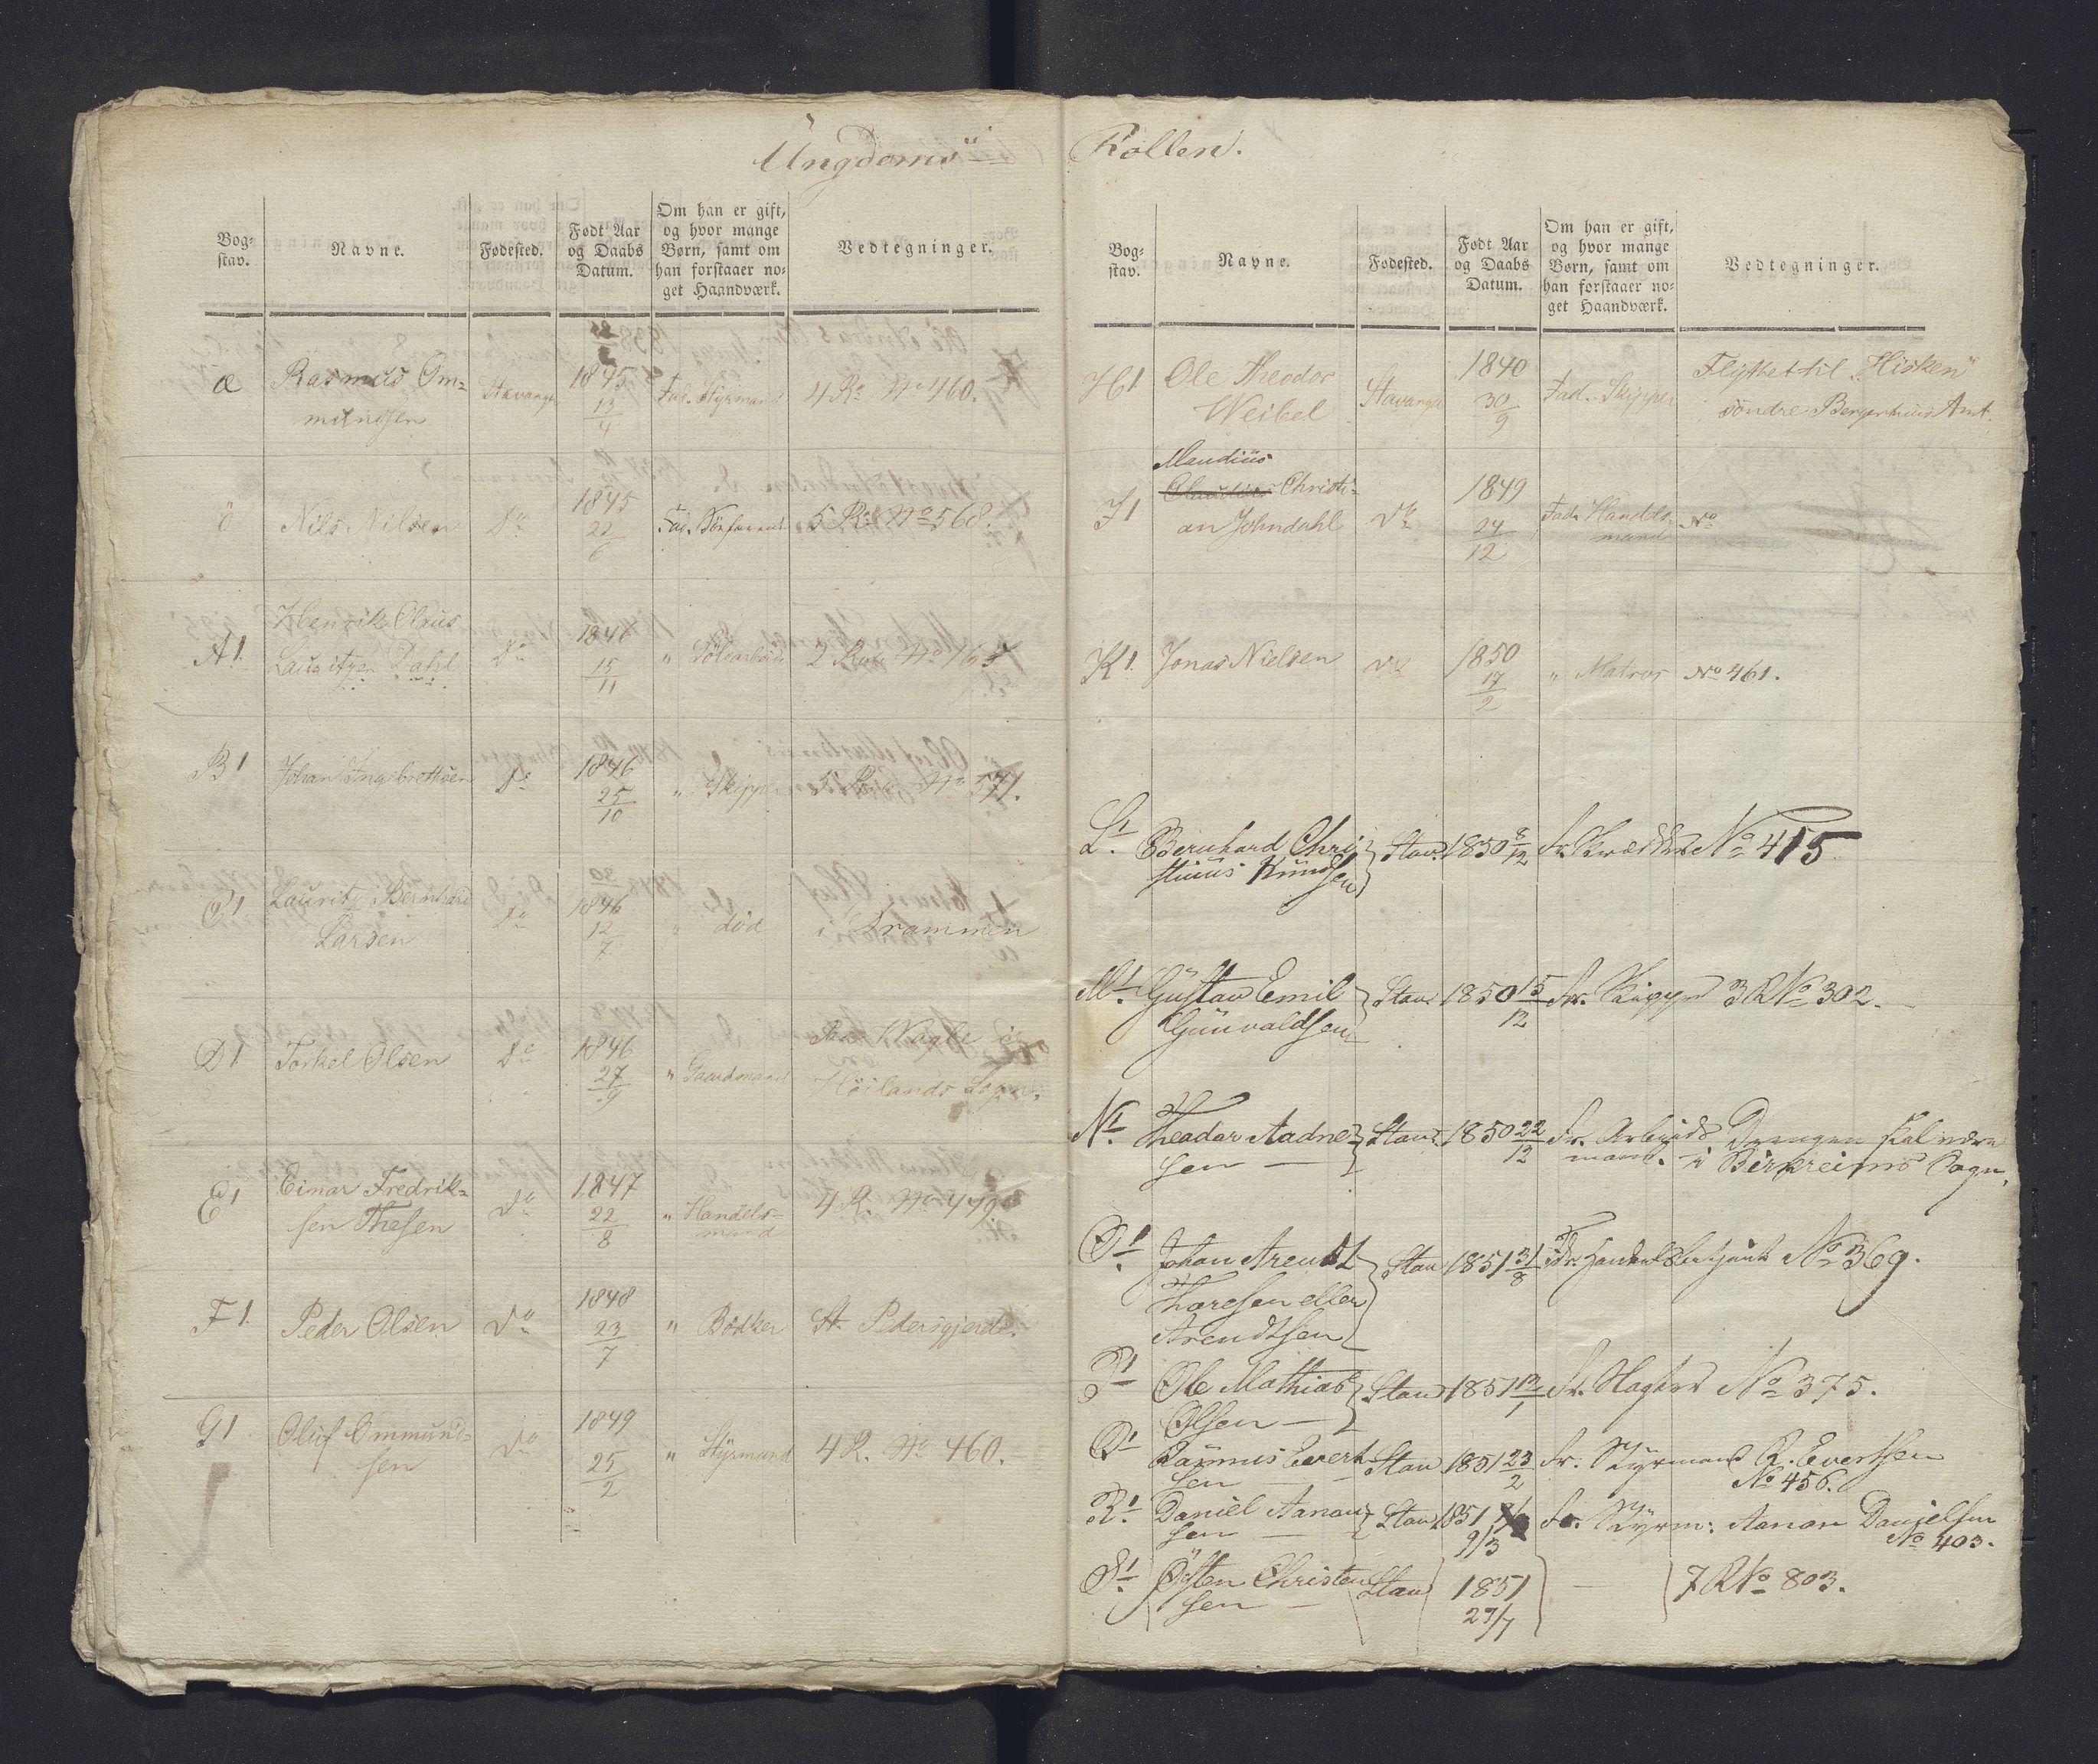 Ungdoms-
Bog-
stav.
Navne.
Fødested.
Født Aar
og Daabs
Datum.
Om han er gift,
og hvor mange
Børn, samt om
han forstaaer no-
get Haandværk.
Vedtegninger.
æ Rasmus Om- Stavanger 1845 13/4 Fad. Styrmand 4 Ro No 460.
mundsen
ö Nils Nilsen Do 1845 22/6 Fad. 5 Ro No 568.
A1. Henrik Claus
Lauritzen Dahl Do 1846 15/11 " 2 No
B1 Johan Ingebrethsen Do 1846 25/10 " Skipper 5 R No 571.
C1 Lauritz Bernhard
Larsen Do 1846 12/7 " død i Drammen
D1 Torkel Olsen Do 1846 27/9 " Gaardmand
Høilands Sogn.
E1 Einar Fredrik-
sen Thesen Do 1847 22/8 " Handels-
mand 4 R. No 479
F1. Peder Olsen Do 1848 23/7 " Bødker St. Pedersgjerde.
G1 Oluf Ommund-
sen Do 1849 25/2 " Styrmand 4 R. No 460.
Rollen.
Bog-
stav.
Navne.
Fødested.
Født Aar
og Daabs
Datum.
Om han er gift,
og hvor mange
Børn, samt om
han forstaaer no-
get Haandværk.
Vedtegninger.
H1 Ole Theodor Stavanger 1840 30/9 Fad. Skipper Flyttet til "Hisken"
Weibel søndre Bergenhuus Amt.
Mandius
Claudius Christi-
an Johndahl Do 1849 24/12 Fad. Handels- No
mand
K1. Jonas Nielsen Do 1850 17/2 " Matros No 461.
L1. Bernhard Chri Stav. 1850 8/12 No 415
stinus Knud
sen
M1. Gustav Emil Stav. 1850 15/12 Fr. Skipper 3 R No 302.
Gunvaldsen
N1. Theodor Aadne Stav. 1850 22/12 Fr. Arbeids Drengen skal være
sen — mand. — i Birkreims Sogn.
O1. Johan Arendt Stav 1851 31/8 No 369.
Thoresen eller
Arendtsen
P1 Ole Mathias Stav 1851 12/1 Fr. No 375.
Olsen —
Q1 Rasmus Evert Stav 1851 23/2 Fr. Styrmand R. Evertsen
sen — No 456.
R1. Daniel Aanon Stav 1851 Fr. Styrm: Aanon Danielsen
sen — 9/3 No 403.
S1. Østen Christen Stav 1851 — 7 R No 803.
sen — 27/7